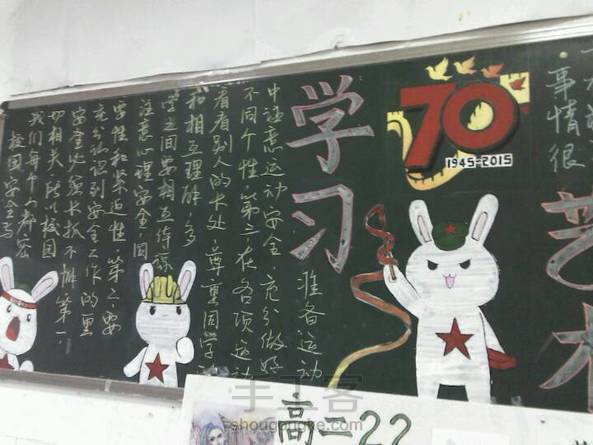 校园安全与
我们每个人都密
切相关,所以校园
安全必须长抓不懈.第一,
充分认识到安全工作的重
要性和紧迫性.第二,要
注意心理安全,同
学之间要相互体谅
和相互理解,多
看看别人的长处,尊重同学
不同个性.第三,在各项运动
中注意运动安全,充分做好
准备运动
学习
70
1945-2015
事情很
艺术
高二22
手工客
shougongke.com